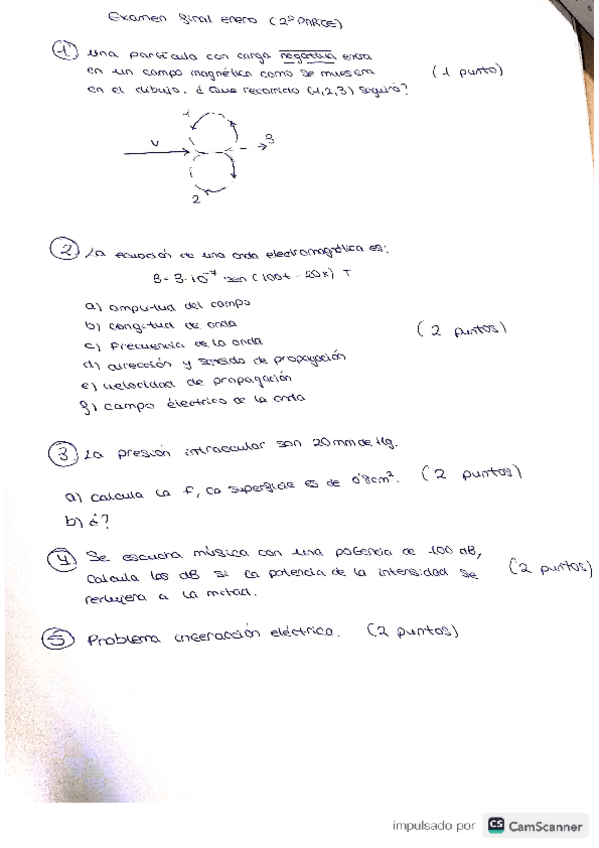 Examen final enero (2ª PARTE)
1. Una partícula con carga negativa entra
en un campo magnético como se muestra (1 punto)
en el dibujo. ¿Que recorrido (1,2,3) seguirá?
1
v
3
2
2. La ecuación de una onda electromagnética es:
B = 3·10⁻⁷ sen (100t - 20x) T
a) amplitud del campo
b) longitud de onda
c) Frecuencia de la onda (2 puntos)
d) dirección y sentido de propagación
e) velocidad de propagación
f) campo eléctrico de la onda
3. La presión intraocular son 20 mm de Hg.
a) calcula la F, la superficie es de 0'8cm². (2 puntos)
b) ¿?
4. Se escucha música con una potencia de 100 dB,
calcula los dB si la potencia de la intensidad se (2 puntos)
redujera a la mitad.
5. Problema interacción eléctrica. (2 puntos)
impulsado por CS CamScanner